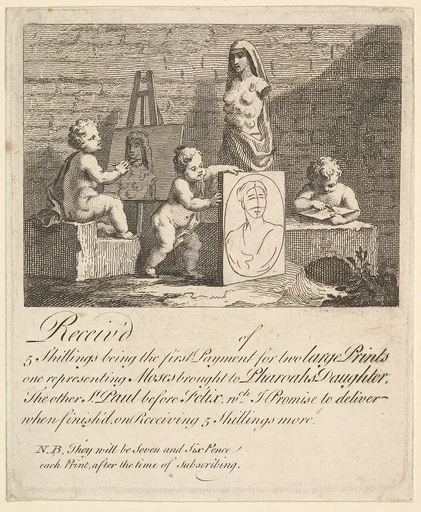 Receiv'd of
5 Shillings being the first Payment for two large Prints
one representing Moses brought to Pharoah's Daughter,
The other St. Paul before Felix, wch. I Promise to deliver
when finish'd, on Receiving 5 Shillings more.
N.B. They will be Seven and Six Pence
each Print, after the time of Subscribing.